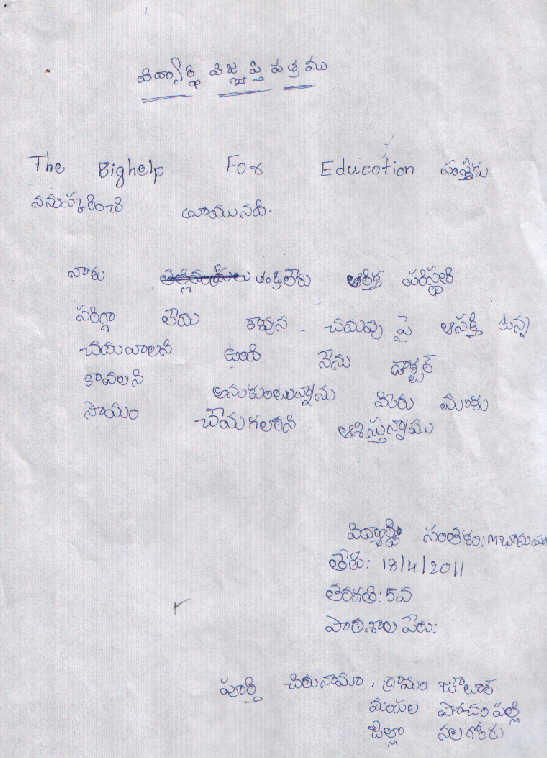 విద్యార్థి విజ్ఞప్తి పత్రము
The Bighelp For Education సంస్థకు
నమస్కరించి వ్రాయునది.
నాకు తండ్రి లేరు ఆర్థిక పరిస్థితి
సరిగ్గా లేదు కావున . చదువు పై ఆసక్తి ఉన్న
చదవాలని ఉంది నేను డాక్టర్
కావాలని అనుకుంటున్నాను మీరు మాకు
సాయం చేయగలరని ఆశిస్తున్నాము
విద్యార్థి సంతకం:
తేది: 18/4/2011
తరగతి: 5వ
పాఠశాల పేరు:
పూర్తి చిరునామా . గ్రామం
మండల పోచంపల్లి
జిల్లా నలగొండ